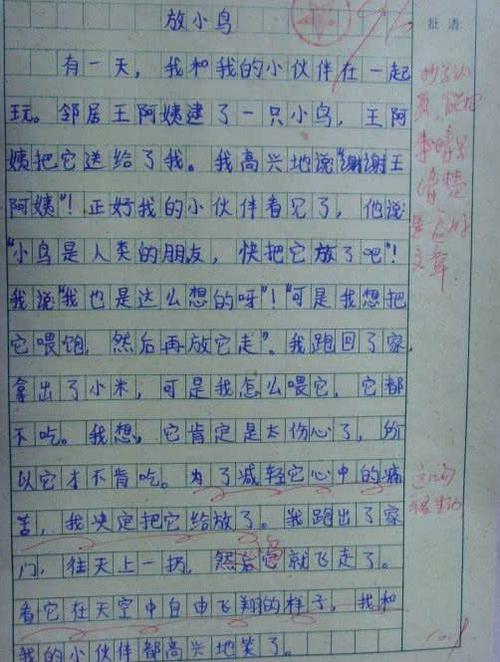 放小鸟
批语
有一天，我和我的小伙伴在一起
玩。邻居王阿姨逮了一只小鸟，王阿
姨把它送给了我。我高兴地说“谢谢王
阿姨”！正好我的小伙伴看见了，他说
“小鸟是人类的朋友，快把它放了吧”！
我说“我也是这么想的呀”！“可是我想把
它喂饱，然后再放它走”。我跑回了家，
拿出了小米，可是我怎么喂它，它都
不吃。我想，它肯定是太伤心了，所
以它才不肯吃。为了减轻它心中的痛
苦，我决定把它给放了。我跑出了家
门，往天上一扔，然后就飞走了。
看它在天空中自由飞翔的样子，我和
我的小伙伴都高兴地笑了。